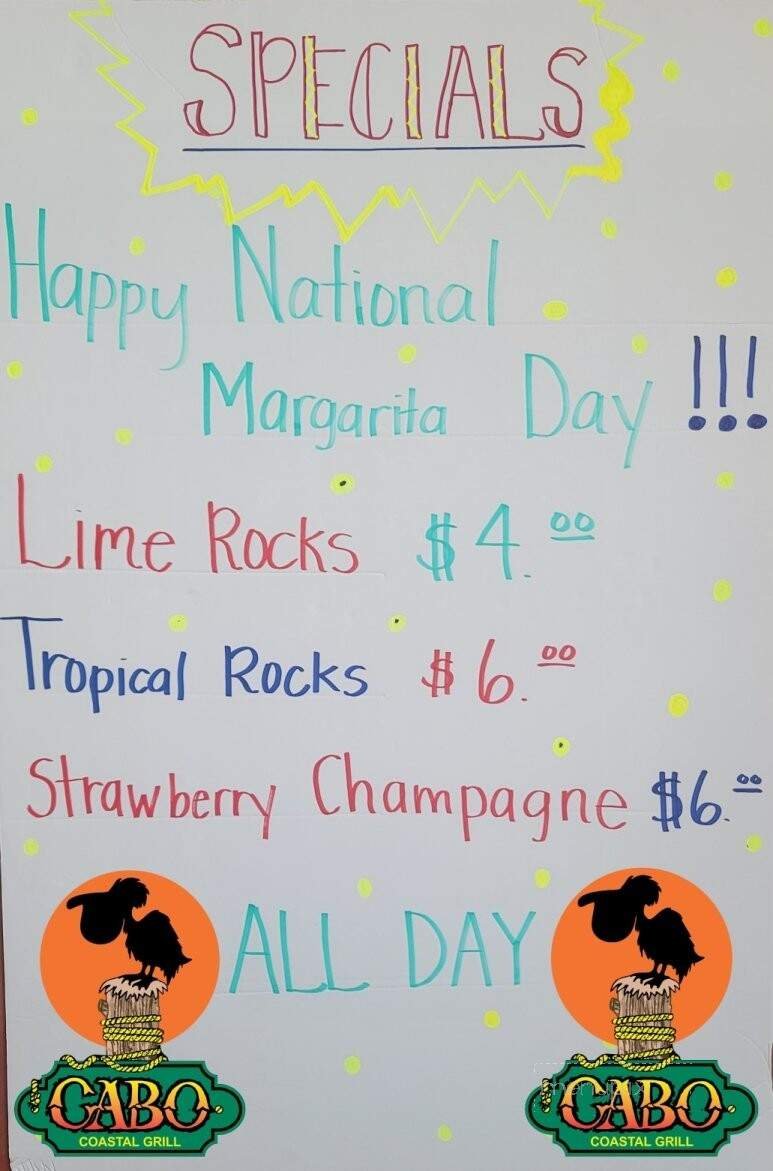 SPECIALS
Happy National
Margarita Day !!!
Lime Rocks $4.00
Tropical Rocks $6.00
Strawberry Champagne $6.00
ALL DAY
CABO
COASTAL GRILL
CABO
COASTAL GRILL